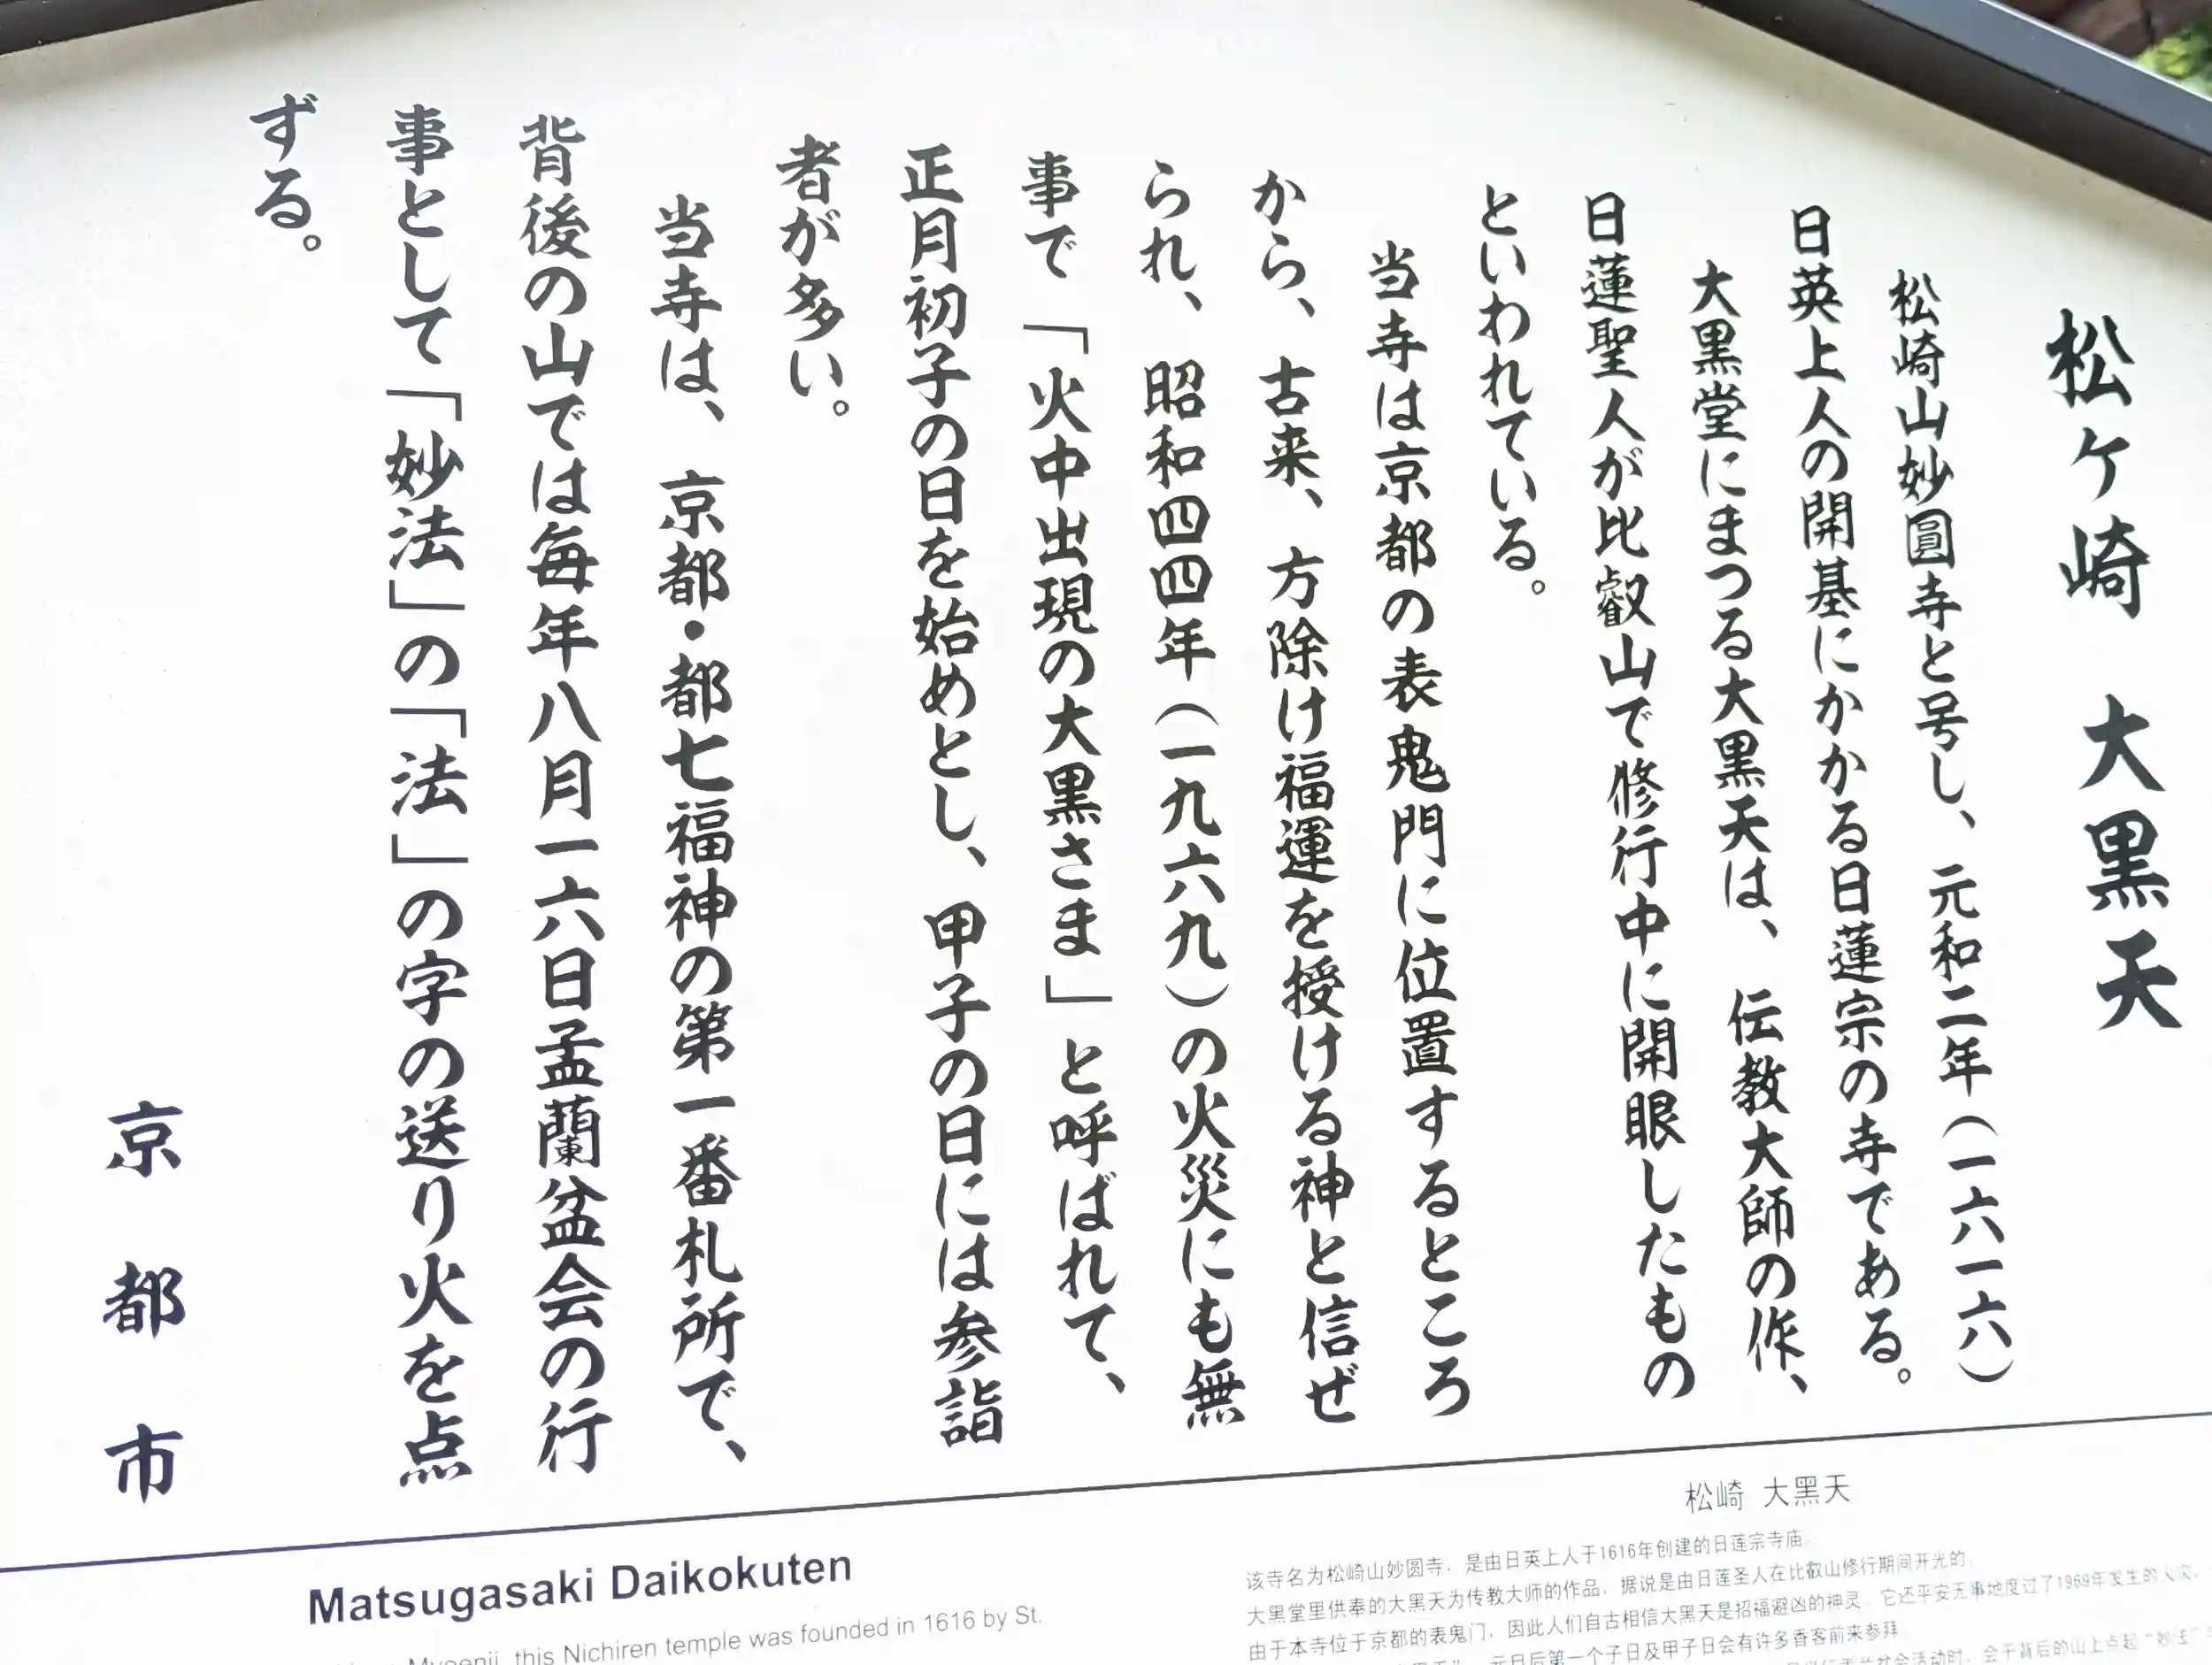 松ケ崎　大黒天
松崎山妙圓寺と号し、元和二年（一六一六）
日英上人の開基にかかる日蓮宗の寺である。
大黒堂にまつる大黒天は、伝教大師の作、
日蓮聖人が比叡山で修行中に開眼したもの
といわれている。
当寺は京都の表鬼門に位置するところ
から、古来、方除け福運を授ける神と信ぜ
られ、昭和四四年（一九六九）の火災にも無
事で「火中出現の大黒さま」と呼ばれて、
正月初子の日を始めとし、甲子の日には参詣
者が多い。
当寺は、京都・都七福神の第一番札所で、
背後の山では毎年八月一六日盂蘭盆会の行
事として「妙法」の「法」の字の送り火を点
ずる。
京都市
Matsugasaki Daikokuten
this Nichiren temple was founded in 1616 by St.
松崎 大黑天
该寺名为松崎山妙圆寺，是由日英上人于1616年创建的日莲宗寺庙。
大黑堂里供奉的大黑天为传教大师的作品，据说是由日莲圣人在比叡山修行期间开光的。
由于本寺位于京都的表鬼门，因此人们自古相信大黑天是招福避凶的神灵。它还平安无事地度过了1969年发生的火灾，
元旦后第一个子日及甲子日会有许多香客前来参拜
活动时，会于背后的山上点起“妙法”